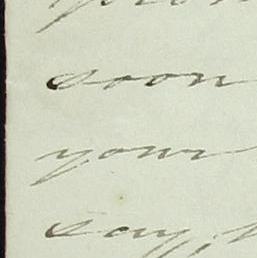 soon
your
say,